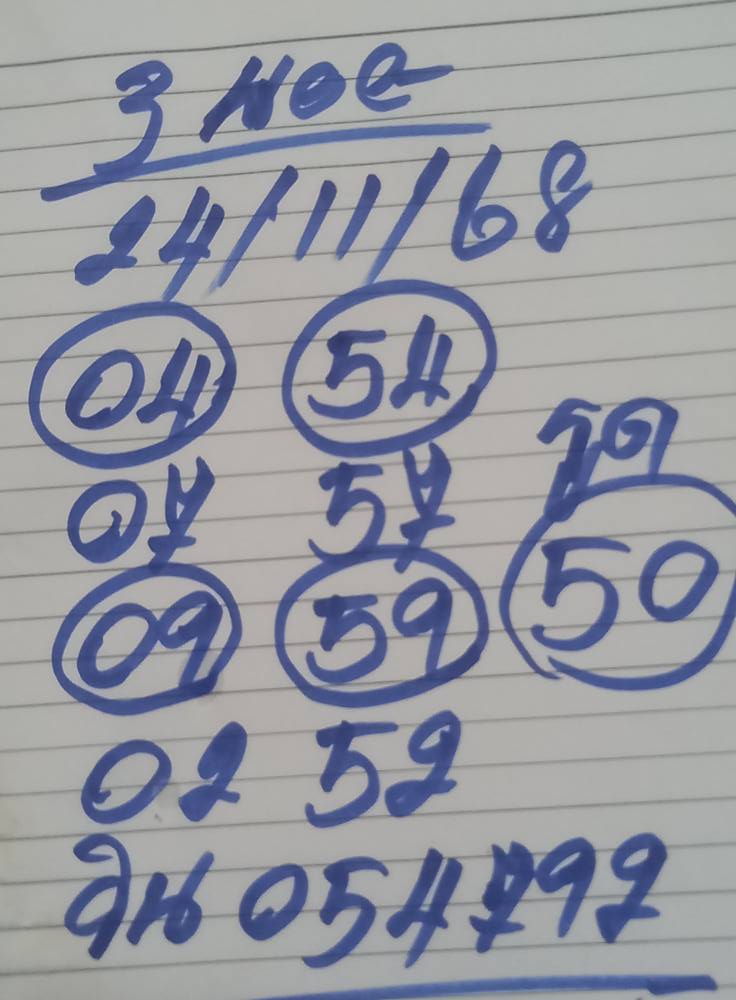 3 นอย
24/11/68
04 54
07 57 รูด
09 59 50
02 52
วิน 054792